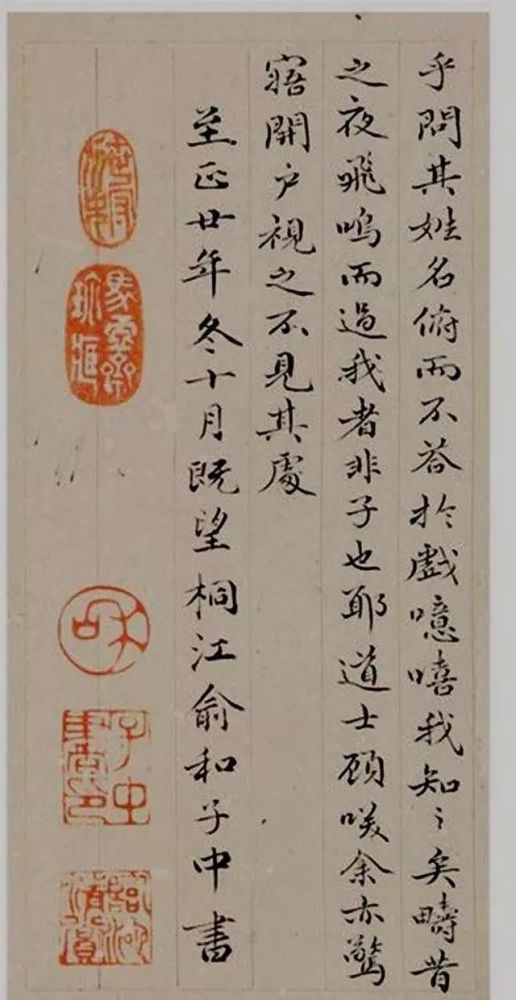 乎問其姓名俯而不荅於戲噫嘻我知〻矣疇昔
之夜飛鳴而過我者非子也耶道士顧唉余亦驚
寤開户視之不見其處
至正廿年冬十月既望桐江俞和子中書
子中